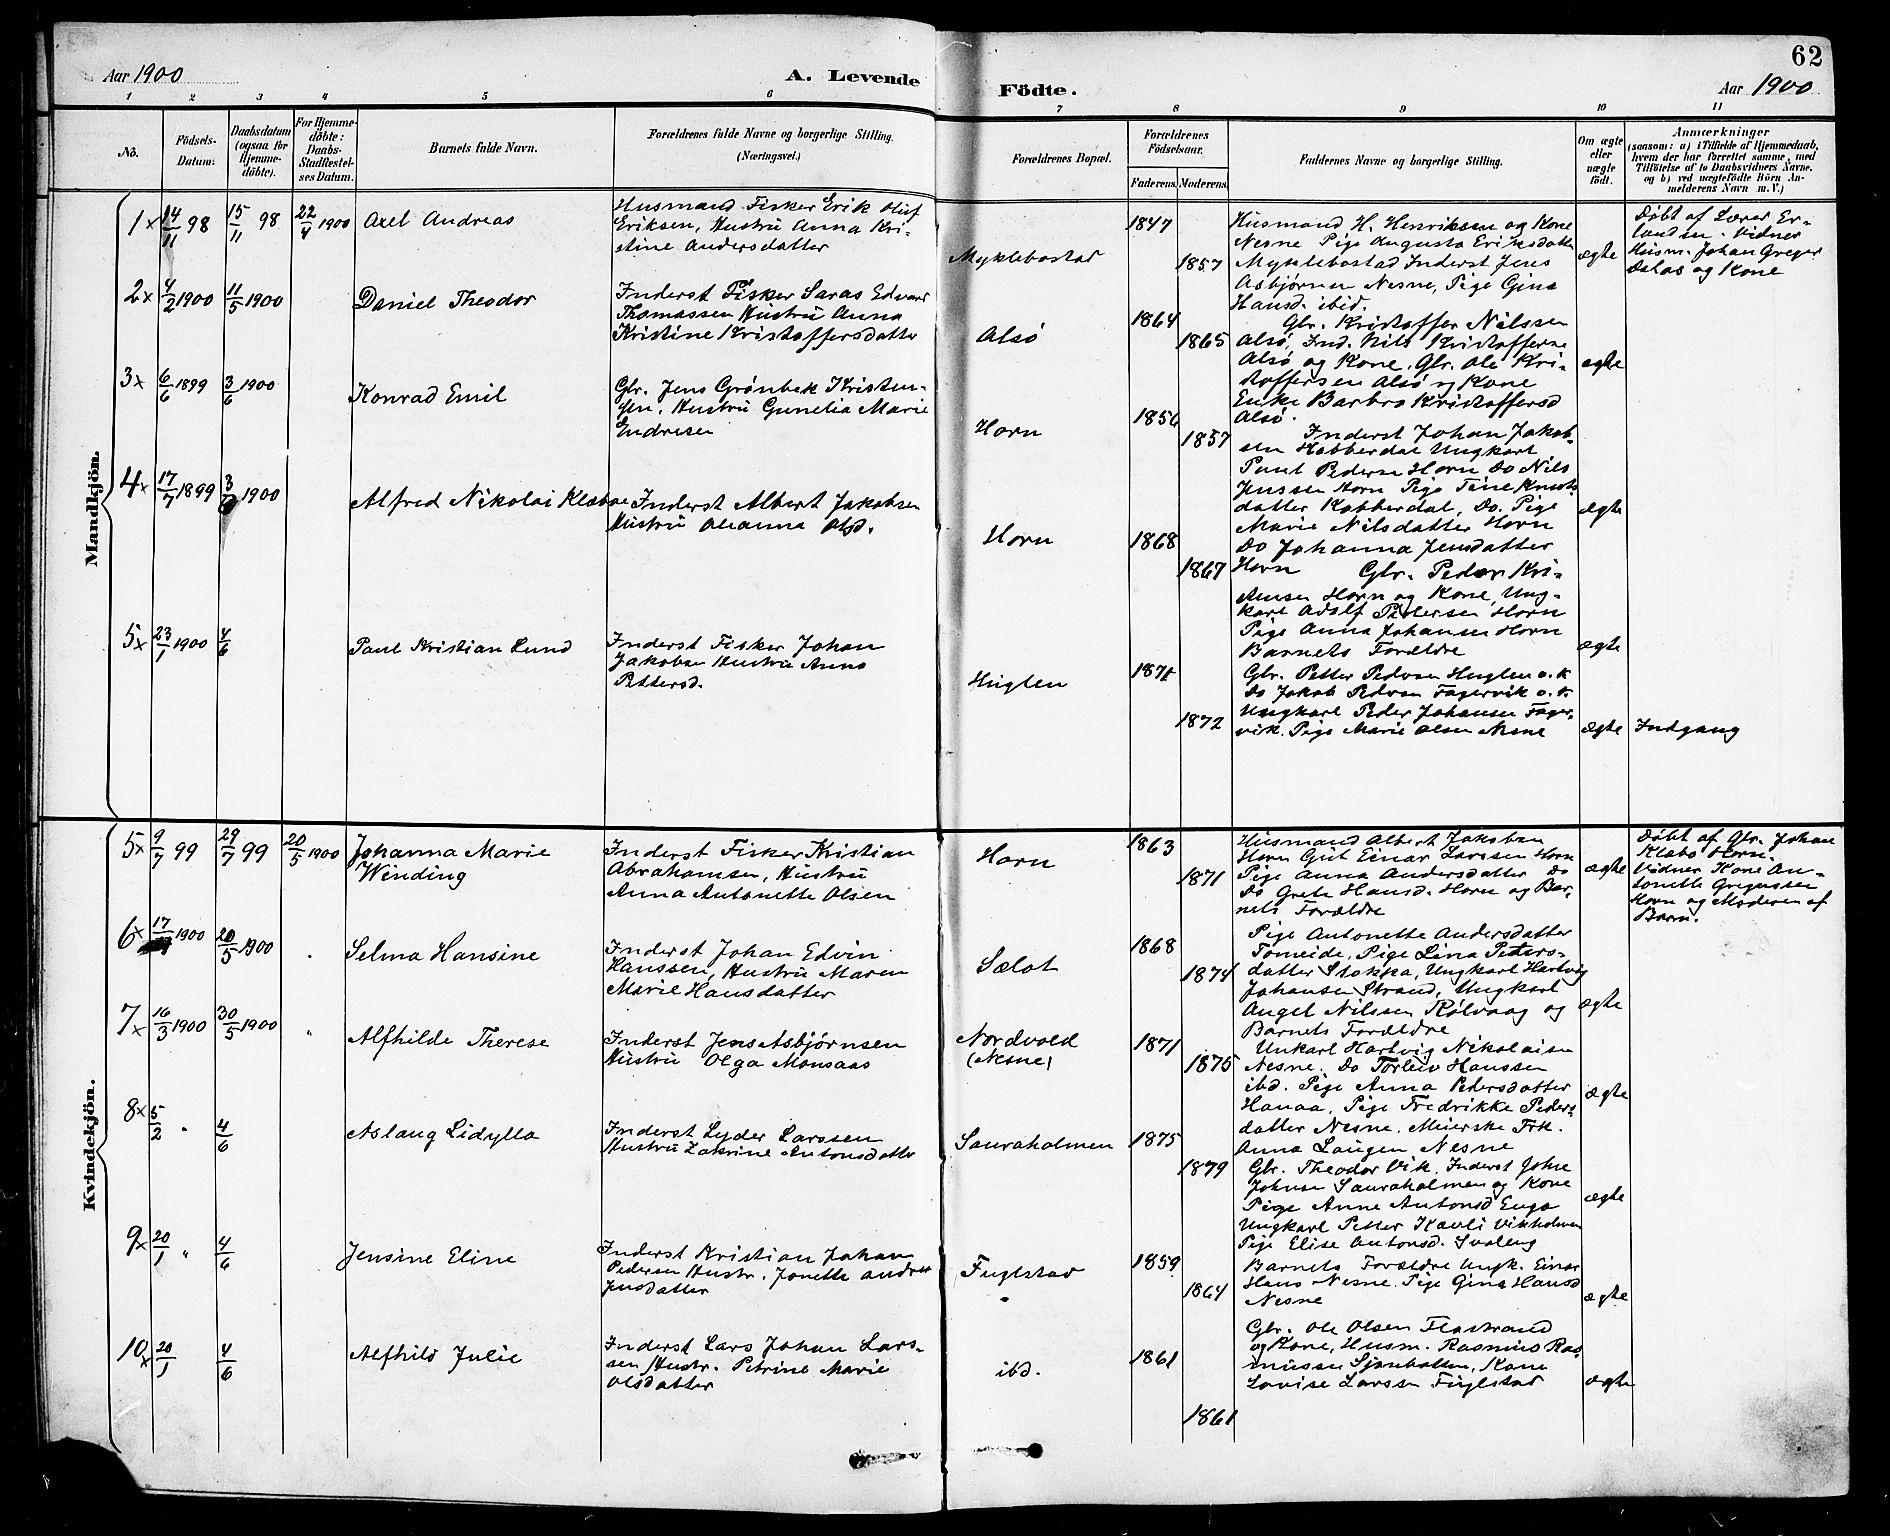 62
Aar 1900
A. Levende
Födte.
Aar 1900
1 2 3 4 5 6 7 8 9 10 11
No.
Födsels-
Datum:
Daabsdatum
(ogsaa for
Hjemme-
döbte).
For Hjemme-
döbte:
Daabs-
Stadfæstel-
ses Datum.
Barnets fulde Navn.
Forældrenes fulde Navne og borgerlige Stilling.
(Næringsvei.)
Forældrenes Bopæl.
Forældrenes
Födselsaar.
Faderens. Moderens.
Faddernes Navne og borgerlige Stilling.
Om ægte
eller
uægte
födt.
Anmærkninger
(saasom: a) i Tilfælde af Hjemmedaab,
hvem der har forrettet samme, med
Tilföielse af to Daabsvidners Navne.
og b) ved uægtefödte Börn An-
melderens Navn m. V.)
Mandkjön.
1 x 14/11 98 15/11 98 22/4 1900 Axel Andreas
Husmand Fisker Erik Oluf
Eriksen, Hustru Anna Kri-
stine Andersdatter
Myklebostad
1847
1857
Husmand H. Henriksen og Kone
Nesne Pige Augusta Eriksdatter
Myklebostad Inderst Jens
Asbjørnsen Nesne, Pige Gina
Hansd. ibid.
ægte
Døbt af Lærer Er-
landsen. Vidner
Husm. Johan Greger
Dalos og Kone
2 x 4/2 1900 11/5 1900 Daniel Theodor
Inderst Fisker Saras Edvard
Thomassen Hustru Anna
Kristine Kristoffersdatter
Alsö
1864
1865
Gbr. Kristoffer Nilssen
Alsö, Ind. Nils Kristoffersen
Alsö og Kone, Gbr. Ole Kri-
stoffersen Alsö og Kone
Enke Barbro Kristoffersd
Alsö.
ægte
3 x 6/6 1899 3/6 1900 Konrad Emil
Gbr. Jens Grönbek Kristen-
sen, Hustru Gunelia Marie
Endresen
Horn
1856
1857
Inderst Johan Jakob-
sen Kobberdal Ungkarl
Paul Pedersen Horn Do Nils
Jenssen Horn Pige Tine Knuts-
datter Kobberdal, Do. Pige
Marie Nilsdatter Horn
Do Johanna Jensdatter
Horn
ægte
4 x 17/7 1899 3/6 1900 Alfred Nikolai Klæboe
Inderst Albert Jakobsen
Hustru Oleanna Olsd.
Horn
1868
1867
Gbr. Peder Kri-
stensen Horn og Kone, Ung-
karl Adolf Pedersen Horn
Pige Anna Johansen Horn
Barnets Forældre
ægte
5 x 23/1 1900 4/6 Paul Kristian Lund
Inderst Fisker Johan
Jakobsen Hustru Anna
Pettersd.
Huglen
1871
1872
Gbr. Petter Pedersen Huglen o.k
Do Jakob Pedersen Fagervik o.k.
Ungkarl Peder Johansen Fager-
vik. Pige Marie Olsen Nesne
ægte
Indgang
Kvindekjön.
5 x 9/7 99 29/7 99 20/5 1900 Johanna Marie
Winding
Inderst Fisker Kristian
Abrahamsen, Hustru
Anna Antonette Olsen
Horn
1863
1871
Husmand Albert Jakobsen
Horn Gut Einar Larssen Horn
Pige Anna Andersdatter Do
Do Grete Hansd. Horn og Bar-
nets Forældre
ægte
Döbt af Gbr. Johan
Klæbo Horn.
Vidner Kone An-
tonette Gregussen
Horn og Moderen af
Barn.
6 x 17/ 1900 20/5 1900 Selma Hansine
Inderst Johan Edvin
Hanssen, Hustru Maren
Marie Hansdatter
Sælot
1868
1874
Pige Antonette Andersdatter
Tomeide, Pige Lina Peters-
datter Stokka, Ungkarl Hartvig
Johansen Strand, Ungkarl
Angel Nilssen Rölvaag og
Barnets Forældre
ægte
7 x 16/3 1900 30/5 1900 " Alfhilde Therese
Inderst Jens Asbjørnsen
Hustru Olga Monsaas
Nordvold
(Nesne)
1871
1875
Unkarl Hartvig Nikolaisen
Nesne. Do Torleiv Hanssen
ibd. Pige Anna Pedersdatter
Hanaa, Pige Fredrikke Peders-
datter Nesne, Meierske Frk.
Anna Laugen Nesne
ægte
8 x 5/2 " 4/6 Aslaug Lidylla
Inderst Lyder Larssen
Hustru Zakrine Antonsdatter
Sauraholmen
1875
1879
Gbr. Theodor Vik, Inderst Johne
Johnsen Sauraholmen og Kone
Pige Anne Antonsd Enga
Ungkarl Petter Kavli Vikholmen
Pige Elise Antonsd. Svaleng
ægte
9 x 20/1 " 4/6 Jensine Eline
Inderst Kristian Johan
Pedersen Hustr. Jonette Andrea
Jensdatter
Fuglstad
1859
1864
Barnets Forældre Ungk. Einar
Hans Nesne. Pige Gina Hansd
Nesne
ægte
10 x 20/1 4/6 Alfhild Julie
Inderst Lars Johan Lars-
sen Hustr. Petrine Marie
Olsdatter
ibd.
1861
1861
Gbr. Ole Olsen Flostrand
og Kone, Husm. Rasmus Ras-
mussen Sjonbotten, Kone
Lovise Larssen Fuglstad
ægte